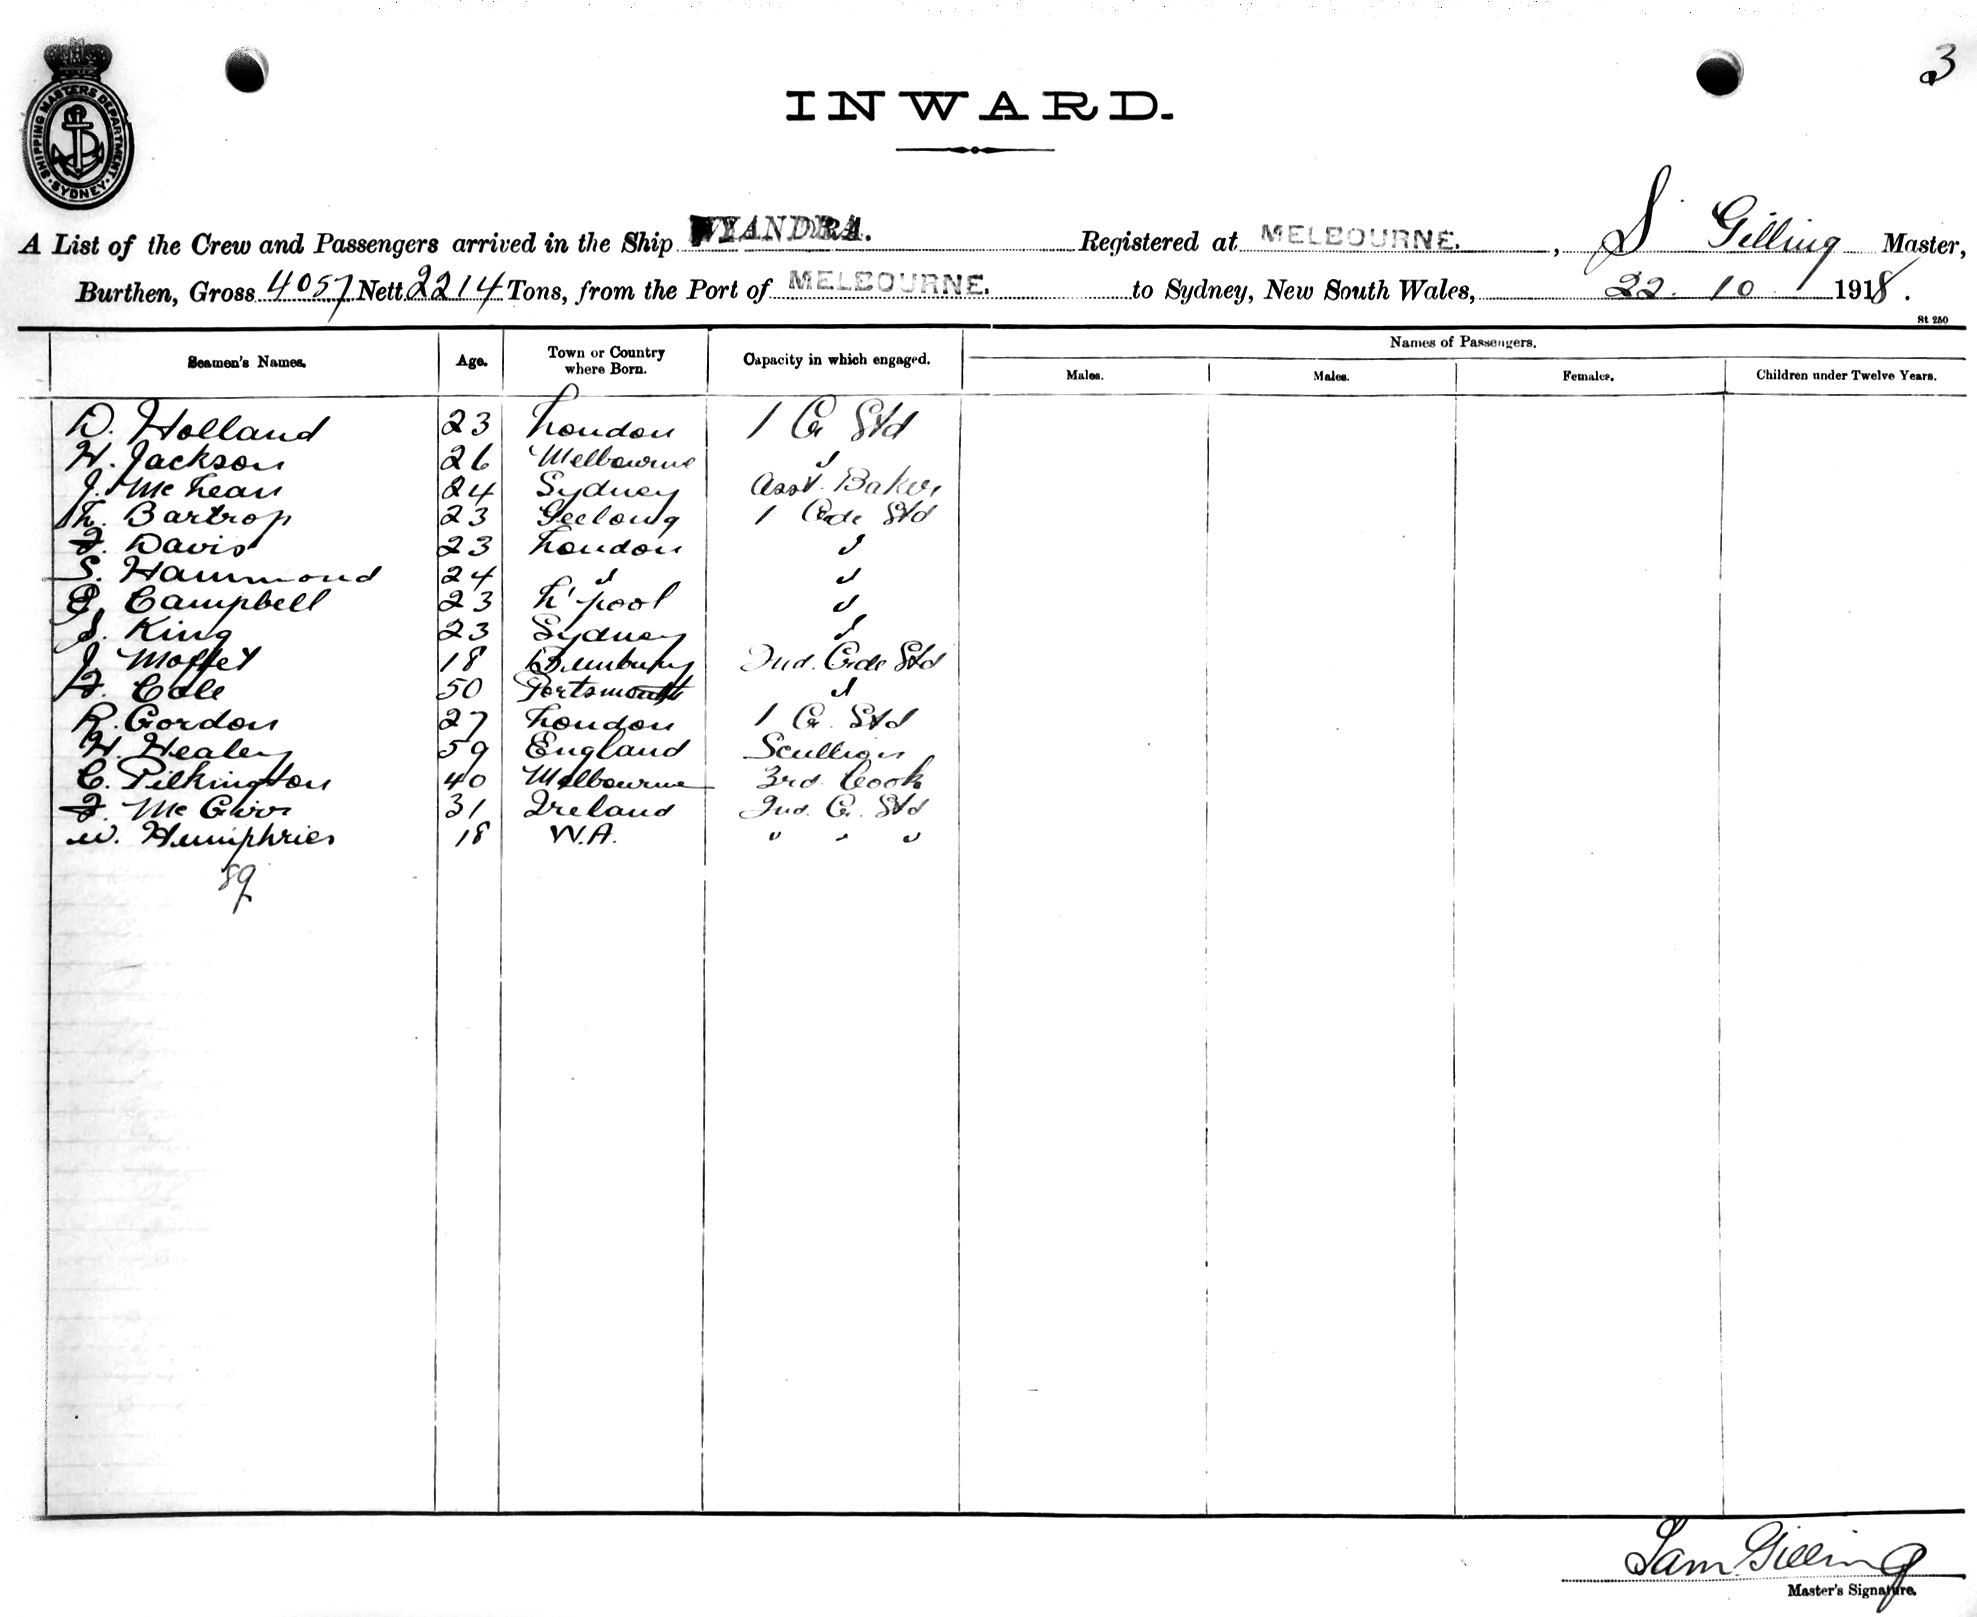 3
SHIPPING MASTERS DEPARTMENT. SYDNEY
INWARD.
A List of the Crew and Passengers arrived in the Ship WYANDRA. Registered at MELBOURNE. , S Gilling Master,
Burthen, Gross 4057 Nett 2214 Tons, from the Port of MELBOURNE. to Sydney, New South Wales, 22. 10 1918.
St 250
Seamen's Names. Age. Town or Country where Born. Capacity in which engaged. Names of Passengers.
Males. Males. Females. Children under Twelve Years.
D. Holland 23 London 1 Cl Std
H. Jackson 26 Melbourne "
J. McLean 24 Sydney Asst. Baker
L. Bartrop 23 Geelong 1 Std
F. Davis 23 London "
S. Hammond 24 " "
Campbell 23 L'pool "
S. King 23 Sydney "
J. Moffet 18 Bunbury 2nd. Std
Cole 50 Portsmouth "
R. Gordon 27 London 1 Cl. Std
H. Healey 59 England Scullion
C. Pilkington 40 Melbourne 3rd. Cook
F. McGirr 31 Ireland 2nd. Cl. Std
W. Humphries 18 W.A. " " "
89
Sam Gilling
Master's Signature.